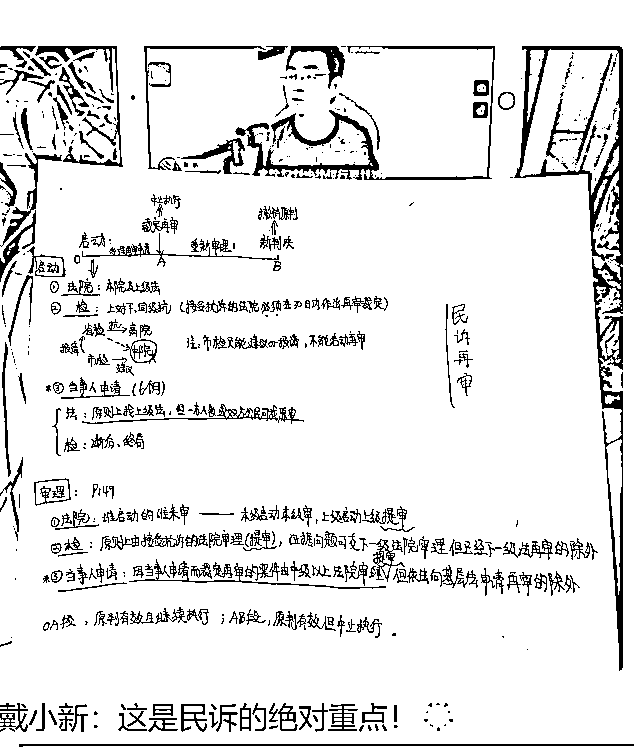 中止执行
撤销原判
裁定再审
新判决
启动:
重新审理!
O
A
B
启动
① 法院: 本院及上级法
② 检: 上对下,同级抗 (接受抗诉的法院必须在30日内作出再审裁定)
省检 抗→ 高院
报请
中院
市检
建议
注:市检只能建议or报请,不能启动再审
民诉再审
*③ 当事人申请 (6个月)
法: 原则上找上级法,但一方人多或双方公民可找原审
检: 断后、终局
审理: P149
①法院: 谁启动的谁来审 —— 本级启动本级审,上级启动上级提审
②检: 原则上由接受抗诉的法院审理(提审),证据问题可交下一级法院审理 但已经下一级法再审的除外
提审
*③当事人申请: 因当事人申请而裁定再审的案件由中级以上法院审理 但依法向基层法申请再审的除外
OA段,原判有效且继续执行;AB段,原判有效但中止执行.
戴小新:这是民诉的绝对重点!